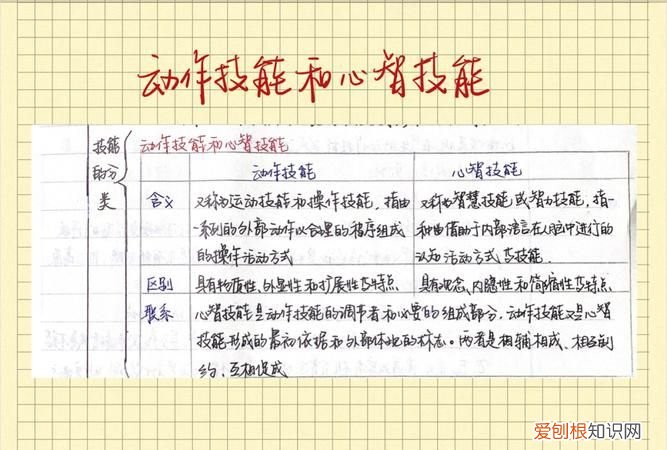 动作技能和心智技能
技能的分类
动作技能和心智技能
动作技能 心智技能
含义
又称为运动技能和操作技能，指由
一系列的外部动作以合理的程序组成
的操作活动方式
又称为智慧技能或智力技能，指一
种借助于内部语言在人脑中进行的
认知活动方式
区别
具有物质性、外显性和扩展性等特点
具有观念、内隐性和简缩性等特点
联系
心智技能是动作技能的调节者和必要的组成部分，动作技能又是心智
技能形成的最初依据和外部体现的标志。两者是相辅相成、相互制
约、互相促成
爱刨根知识网